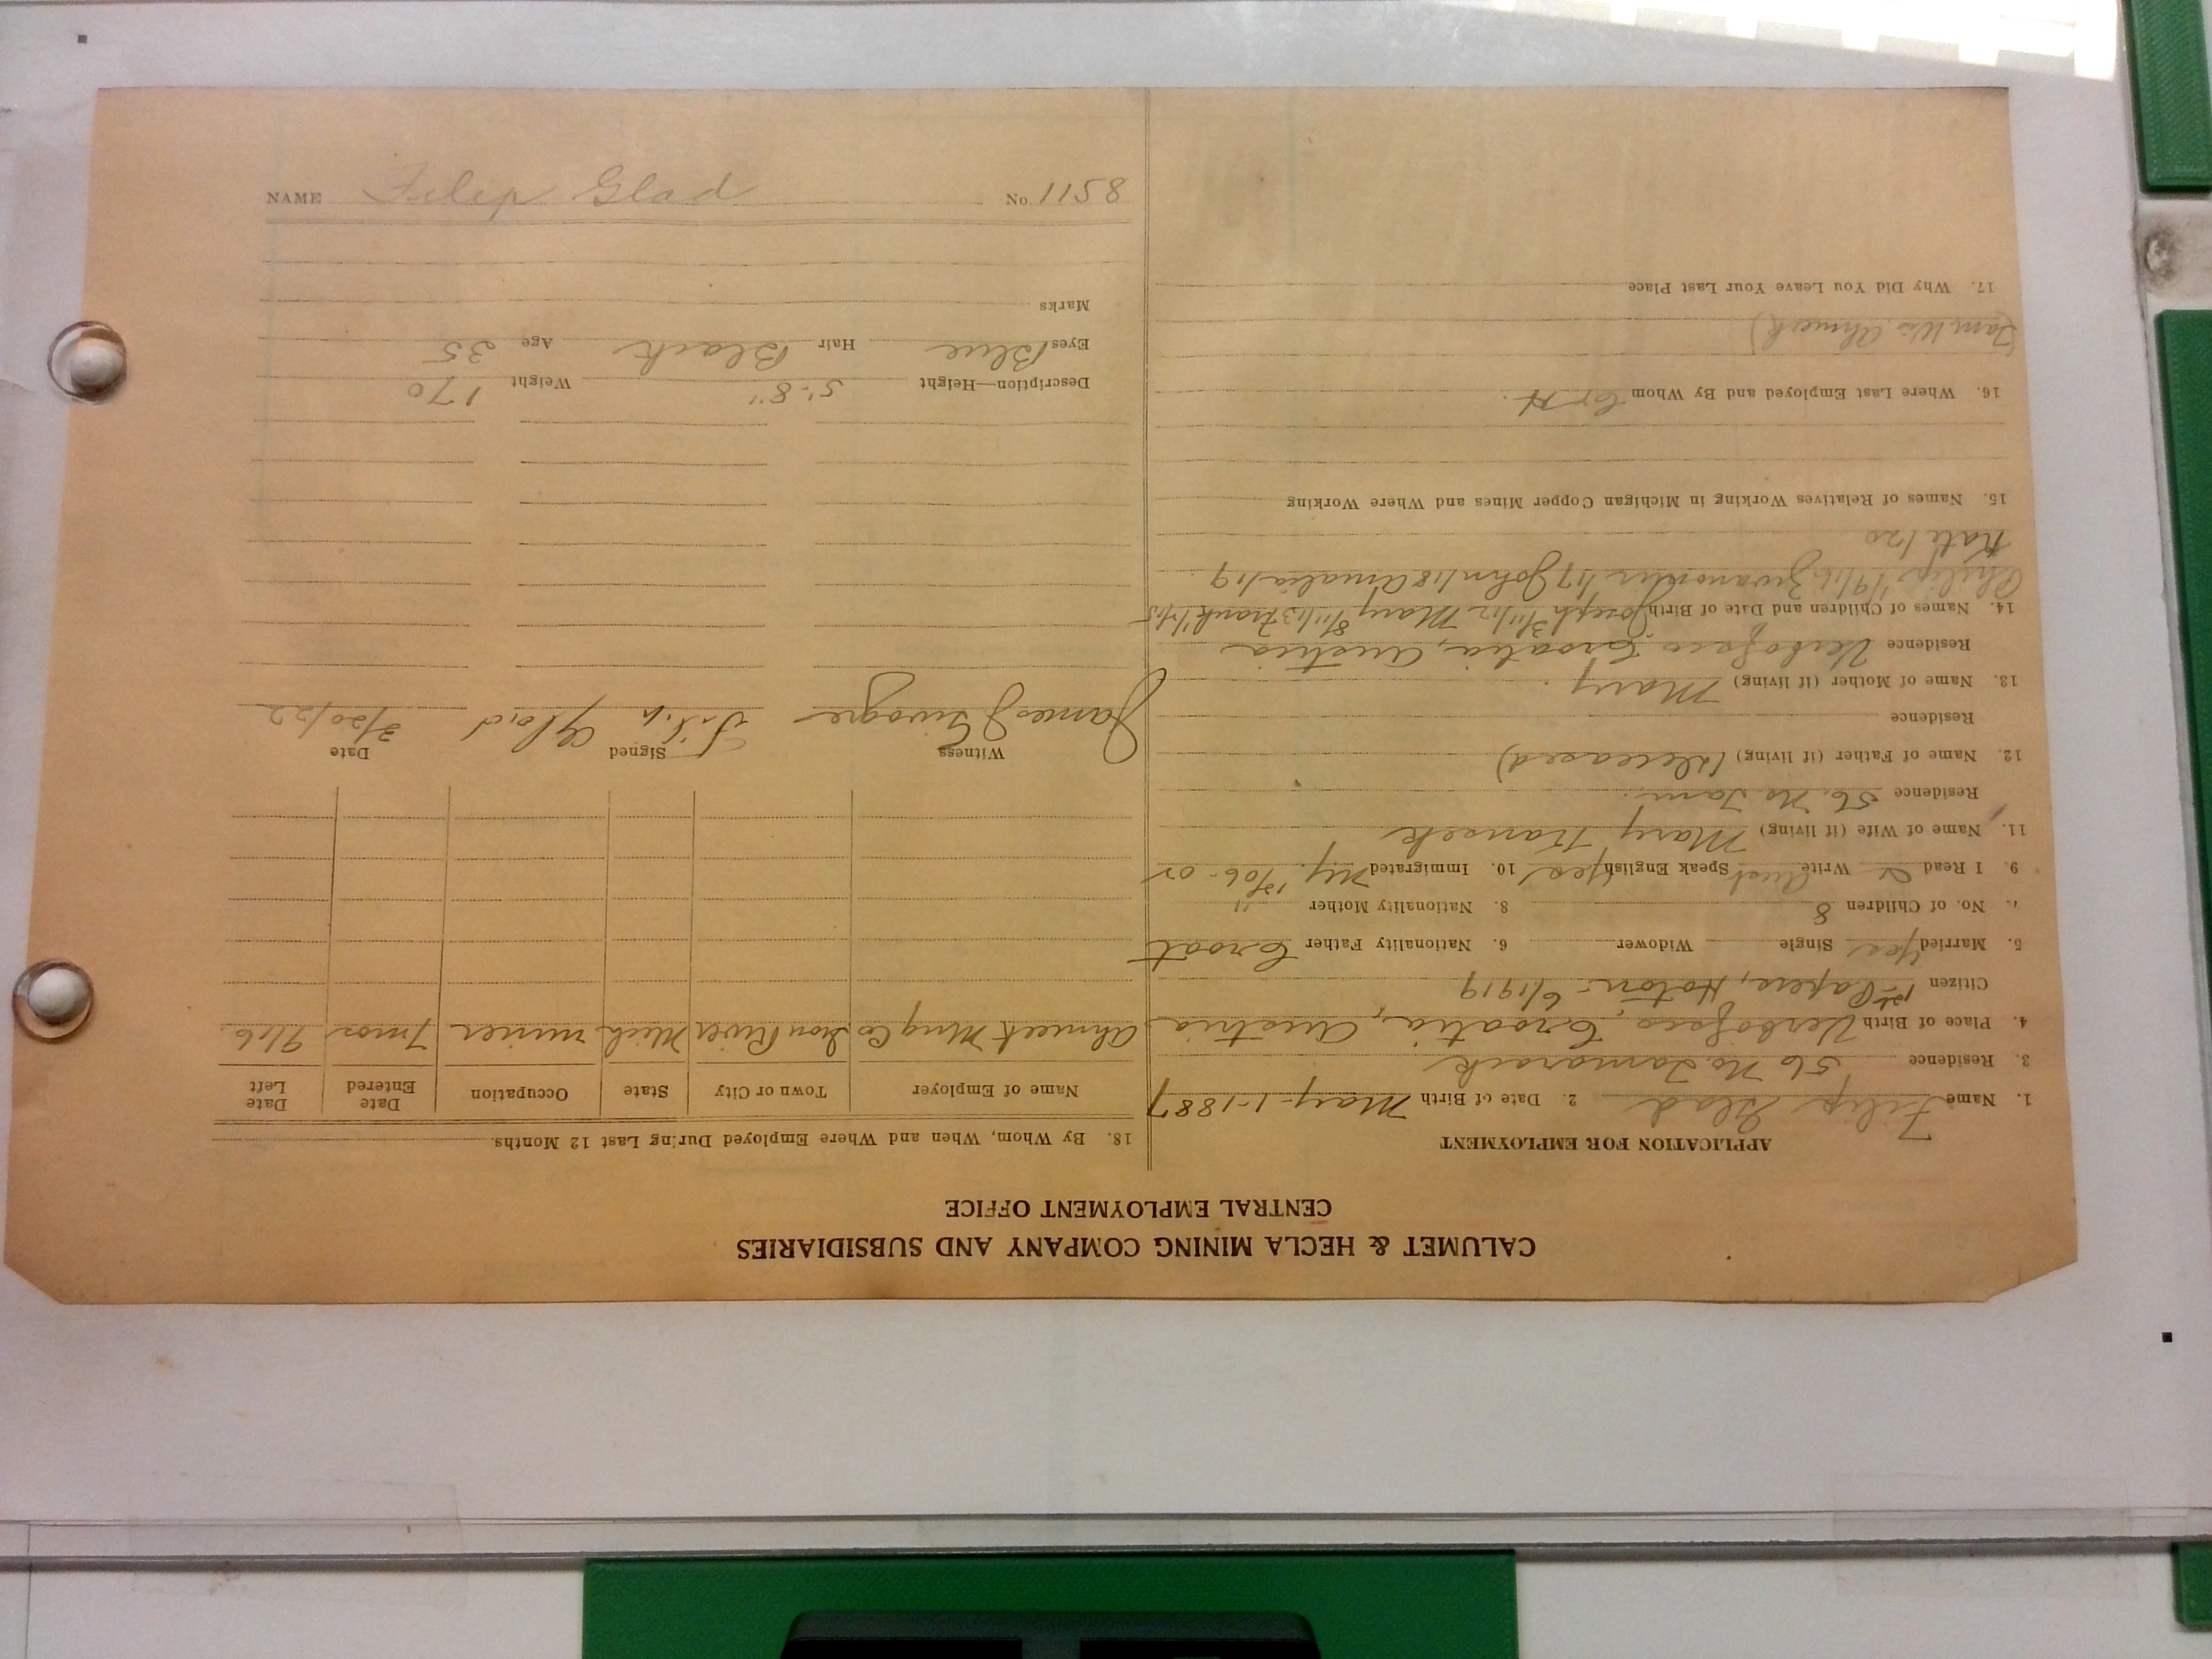 CALUMET & HECLA MINING COMPANY AND SUBSIDIARIES
CENTRAL EMPLOYMENT OFFICE
APPLICATION FOR EMPLOYMENT
1. Name Filip Glad 2. Date of Birth May-1-1887
3. Residence 56 No. Tamarack
4. Place of Birth Croatia, Austria
Citizen 1st Papers, Hoton - 6/1919
5. Married Yes Single Widower 6. Nationality Father Croat
7. No. of Children 8 8. Nationality Mother "
9. I Read Write Speak English Yes 10. Immigrated
11. Name of Wife (if living) Mary
Residence 56. No. Tam.
12. Name of Father (if living) (deceased)
Residence
13. Name of Mother (if living) Mary.
Residence Croatia, Austria
14. Names of Children and Date of Birth Joseph 3/11/12 Mary 8/11/13 Frank
Philip 1/9/16 /17 John 1/18 Amalia 1/19
Kate 1/20
15. Names of Relatives Working in Michigan Copper Mines and Where Working
16. Where Last Employed and By Whom C&H.
17. Why Did You Leave Your Last Place
18. By Whom, When and Where Employed During Last 12 Months
Name of Employer Town or City State Occupation Date Entered Date Left
Ahmeek Mng Co Iron River Mich miner 7 mos
Witness Signed Date
James J Filip Glad 3/20/22
Description—Height 5'-8" Weight 170
Eyes Blue Hair Black Age 35
Marks
NAME Filip Glad No. 1158